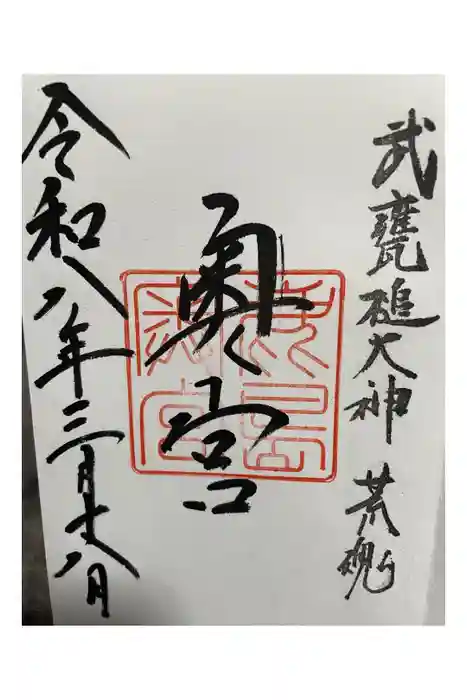 武甕槌大神 荒魂
奥宮
令和八年三月十八日